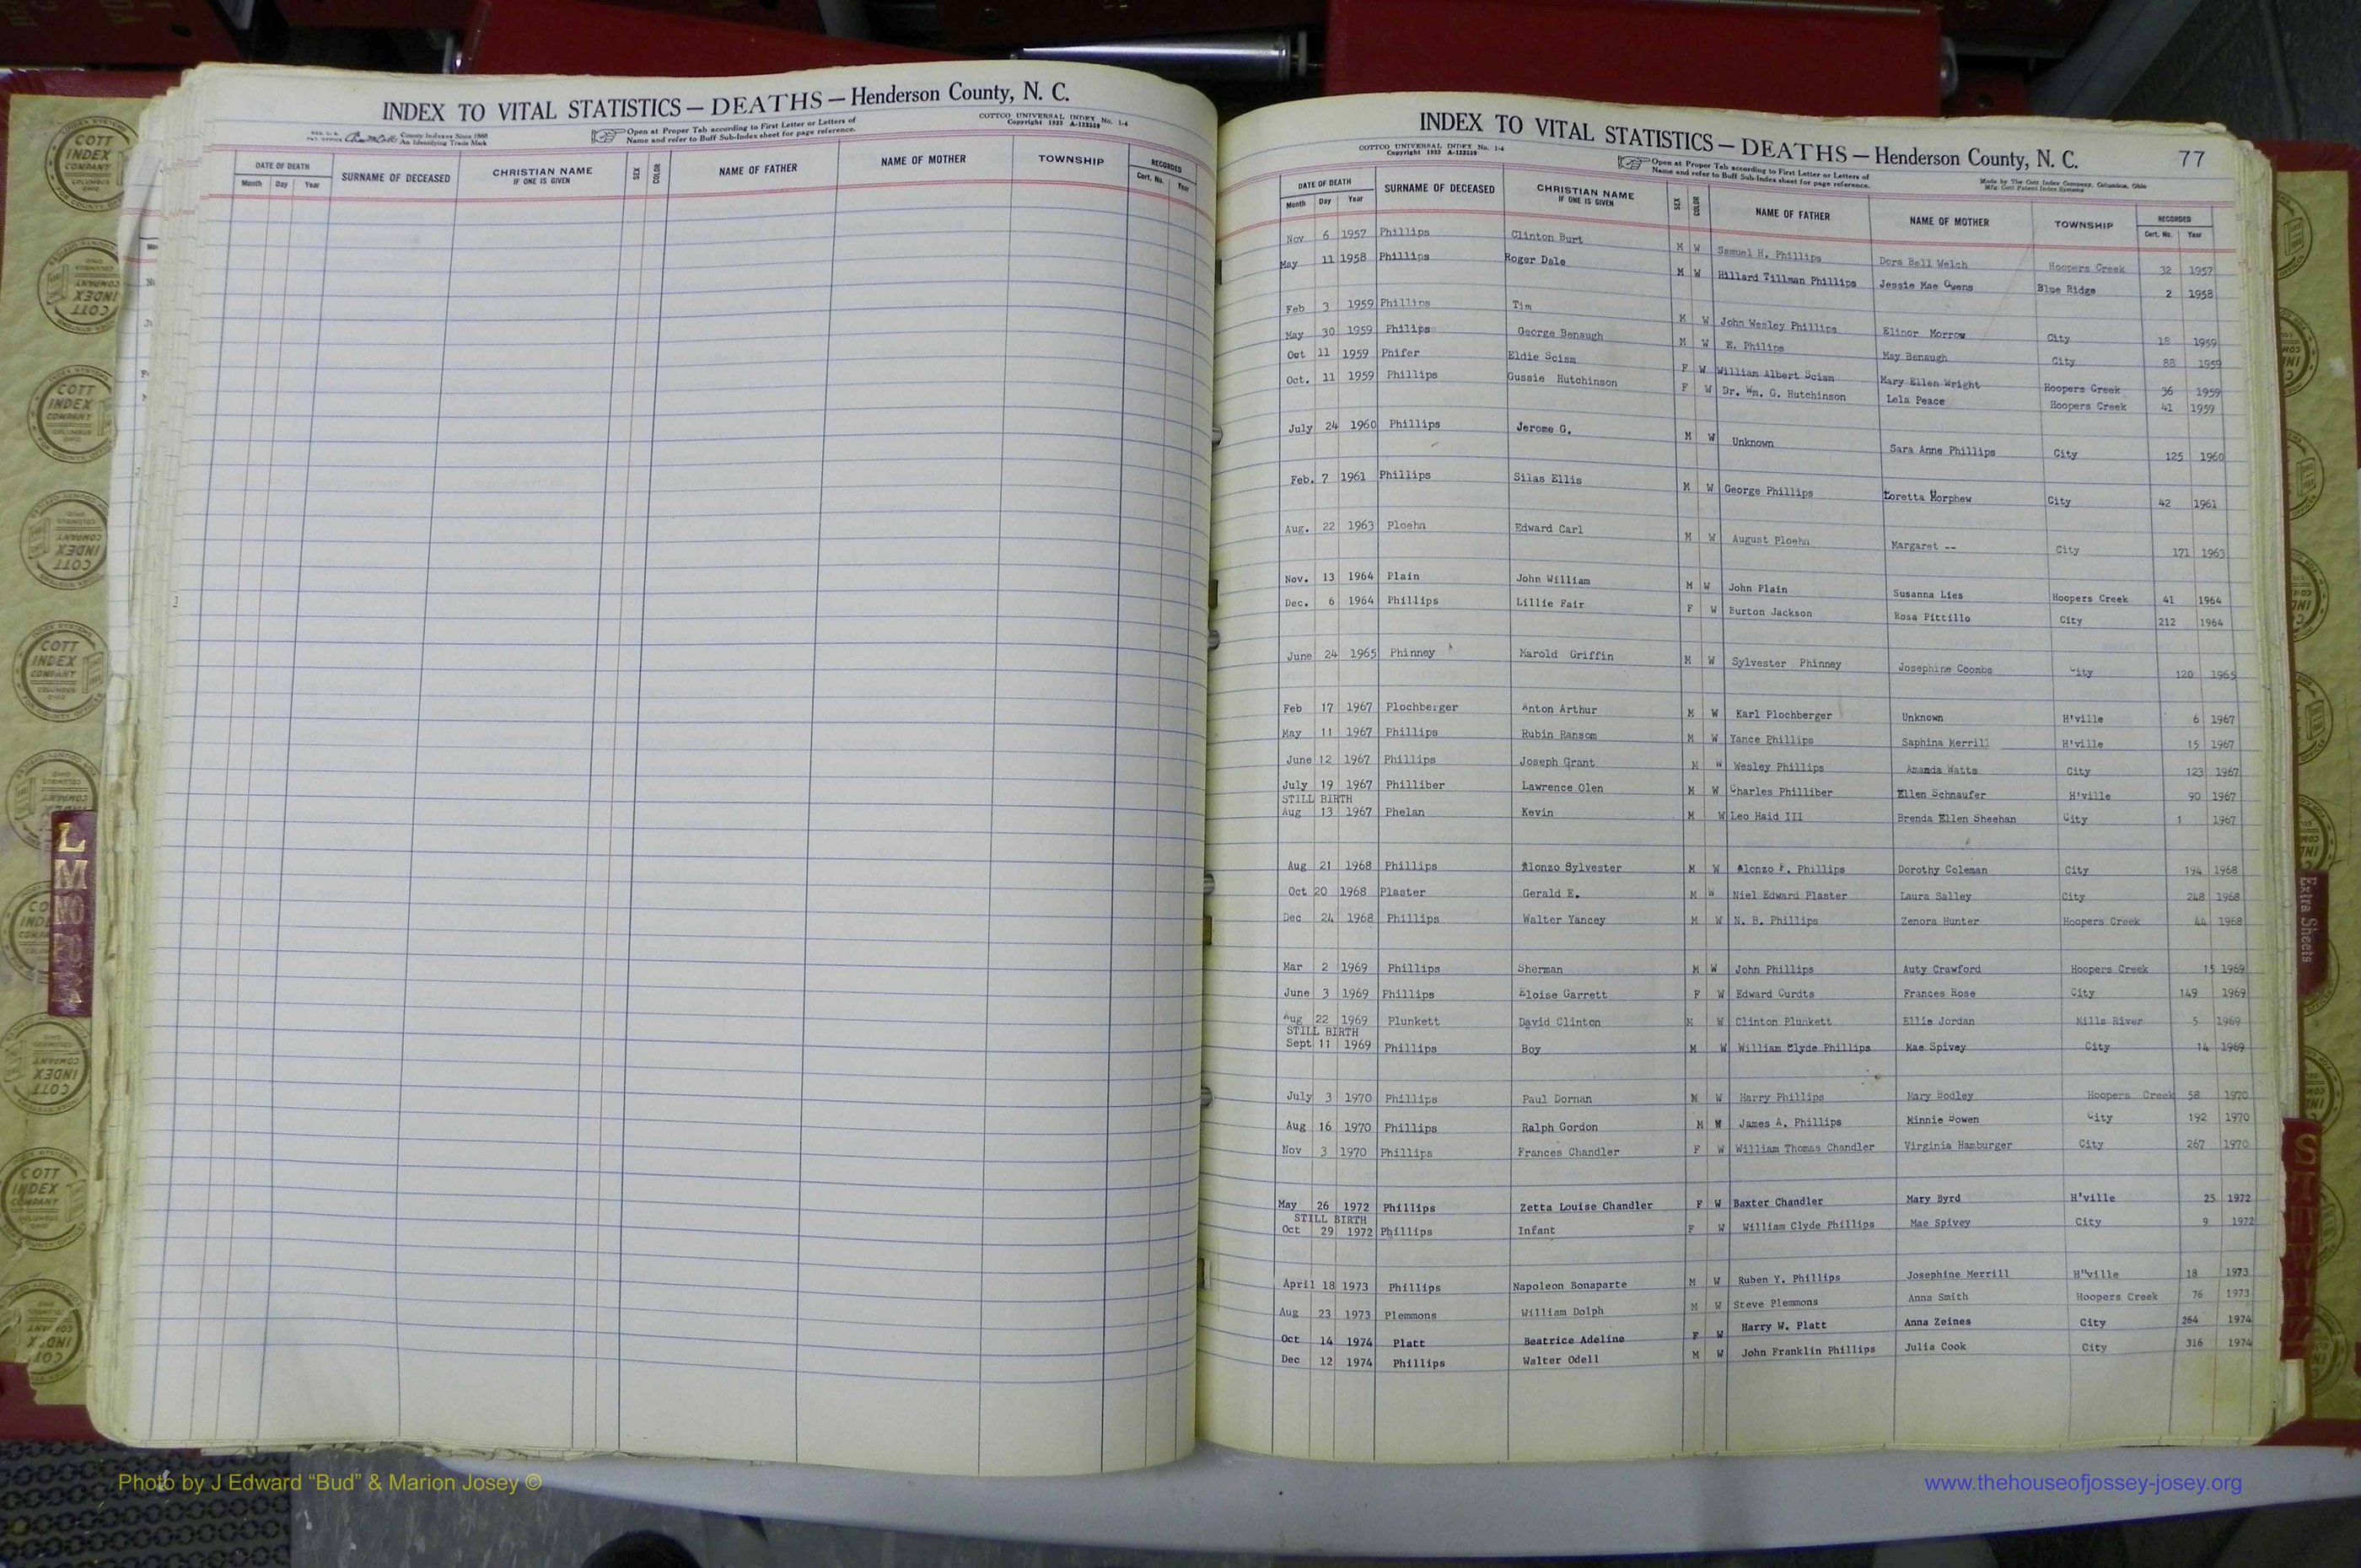 INDEX TO VITAL STATISTICS — DEATHS — Henderson County, N. C.
County Indexes Since 1888
An Identifying Trade Mark
Open at Proper Tab according to First Letter or Letters of
Name and refer to Buff Sub-Index sheet for page reference.
COTTCO UNIVERSAL INDEX No. 1-4
Copyright 1933 A-122559
DATE OF DEATH SURNAME OF DECEASED CHRISTIAN NAME IF ONE IS GIVEN SEX COLOR NAME OF FATHER NAME OF MOTHER TOWNSHIP RECORDED
Month Day Year Cert. No. Year
INDEX TO VITAL STATISTICS — DEATHS — Henderson County, N. C. 77
COTTCO UNIVERSAL INDEX No. 1-4
Copyright 1933 A-122559
Open at Proper Tab according to First Letter or Letters of
Name and refer to Buff Sub-Index sheet for page reference.
Made by The Cott Index Company, Columbus, Ohio
Mfg. Cott Patent Index Systems
DATE OF DEATH SURNAME OF DECEASED CHRISTIAN NAME IF ONE IS GIVEN SEX COLOR NAME OF FATHER NAME OF MOTHER TOWNSHIP RECORDED
Month Day Year Cert. No. Year
Nov 6 1957 Phillips Clinton Burt M W Samuel H. Phillips Dora Bell Welch Hoopers Creek 32 1957
May 11 1958 Phillips Roger Dale M W Hillard Tillman Phillips Jessie Mae Owens Blue Ridge 2 1958
Feb 3 1959 Phillips Tim M W John Wesley Phillips Elinor Morrow City 18 1959
May 30 1959 Philips George Benaugh M W E. Philips May Benaugh City 88 1959
Oct 11 1959 Phifer Eldie Scism F W William Albert Scism Mary Ellen Wright Hoopers Creek 36 1959
Oct. 11 1959 Phillips Gussie Hutchinson F W Dr. Wm. G. Hutchinson Lela Peace Hoopers Creek 41 1959
July 24 1960 Phillips Jerome G. M W Unknown Sara Anne Phillips City 125 1960
Feb. 7 1961 Phillips Silas Ellis M W George Phillips Loretta Morphew City 42 1961
Aug. 22 1963 Ploehn Edward Carl M W August Ploehn Margaret -- City 171 1963
Nov. 13 1964 Plain John William M W John Plain Susanna Lies Hoopers Creek 41 1964
Dec. 6 1964 Phillips Lillie Fair F W Burton Jackson Rosa Pittillo City 212 1964
June 24 1965 Phinney Marold Griffin M W Sylvester Phinney Josephine Coombs City 120 1965
Feb 17 1967 Plochberger Anton Arthur M W Karl Plochberger Unknown H'ville 6 1967
May 11 1967 Phillips Rubin Ransom M W Yance Phillips Saphina Merrill H'ville 15 1967
June 12 1967 Phillips Joseph Grant M W Wesley Phillips Amanda Watts City 123 1967
July 19 1967 Philliber Lawrence Olen M W Charles Philliber Ellen Schnaufer H'ville 90 1967
STILL BIRTH
Aug 13 1967 Phelan Kevin M W Leo Haid III Brenda Ellen Sheehan City 1 1967
Aug 21 1968 Phillips Alonzo Sylvester M W Alonzo F. Phillips Dorothy Coleman City 194 1968
Oct 20 1968 Plaster Gerald E. M W Niel Edward Plaster Laura Salley City 248 1968
Dec 24 1968 Phillips Walter Yancey M W N. B. Phillips Zenora Hunter Hoopers Creek 44 1968
Mar 2 1969 Phillips Sherman M W John Phillips Auty Crawford Hoopers Creek 15 1969
June 3 1969 Phillips Eloise Garrett F W Edward Curdts Frances Rose City 149 1969
Aug 22 1969 Plunkett David Clinton M W Clinton Plunkett Ellie Jordan Mills River 5 1969
STILL BIRTH
Sept 11 1969 Phillips Boy M W William Clyde Phillips Mae Spivey City 14 1969
July 3 1970 Phillips Paul Dornan M W Harry Phillips Mary Bodley Hoopers Creek 58 1970
Aug 16 1970 Phillips Ralph Gordon M W James A. Phillips Minnie Bowen City 192 1970
Nov 3 1970 Phillips Frances Chandler F W William Thomas Chandler Virginia Hamburger City 267 1970
May 26 1972 Phillips Zetta Louise Chandler F W Baxter Chandler Mary Byrd H'ville 25 1972
STILL BIRTH
Oct 29 1972 Phillips Infant F W William Clyde Phillips Mae Spivey City 9 1972
April 18 1973 Phillips Napoleon Bonaparte M W Ruben Y. Phillips Josephine Merrill H"ville 18 1973
Aug 23 1973 Plemmons William Dolph M W Steve Plemmons Anna Smith Hoopers Creek 76 1973
Oct 14 1974 Platt Beatrice Adeline F W Harry W. Platt Anna Zeines City 264 1974
Dec 12 1974 Phillips Walter Odell M W John Franklin Phillips Julia Cook City 316 1974
COTT INDEX COMPANY COLUMBUS OHIO
L
M
Extra Sheets
Photo by J Edward “Bud” & Marion Josey ©
www.thehouseofjossey-josey.org